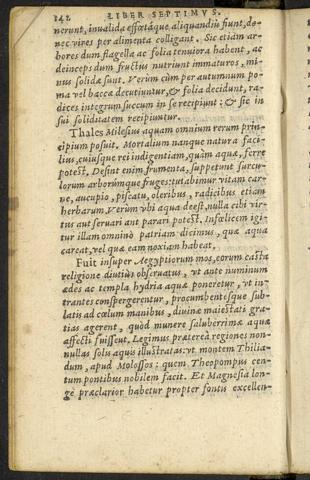 142. LIBER SEPTIMVS.
nerunt, invalida effœtáque aliquandiu fiunt, do-
nec vires per alimenta colligant. Sic etiam ar-
bores dum flagella ac folia tenuiora habent, ac
deinceps dum fructus nutriunt immaturos, mi-
nus solidæ sunt. Verùm cùm per autumnum po-
ma vel baccæ decutiuntur, & folia decidunt, ra-
dices integrum succum in se recipiunt: & sic in
sui soliditatem recipiuntur.
Thales Milesius aquam omnium rerum prin-
cipium posuit. Mortalium nanque natura faci-
lius, cuiusque rei indigentiam, quàm aquæ, ferre
potest. Desint enim frumenta, suppetunt surcu-
lorum arborúmque fruges: tut abimur vitam car-
ne, aucupio, piscatu, oleribus, radicibus etiam
herbarum. Verùm vbi aqua deest, nulla cibi vir-
tus aut servari aut parari potest. Infœlicem igi-
tur illam omnino patriam dicimus, quæ aqua
careat, vel quæ eam noxiam habeat.
Fuit insuper Aegyptiorum mos, eorum casta
religione diutiùs observatus, vt ante numinum
ædes ac templa hydria aquæ poneretur, vt in-
trantes conspergerentur, procumbentésque sub-
latis ad cœlum manibus, divinæ maiestati gra-
tias agerent, quòd munere saluberrimæ aquæ
affecti fuissent. Legimus præterea regiones non-
nullas solis aquis illustratas: vt montem Thilia-
dum, apud Molossos: quem Theopompus cen-
tum pontibus nobilem facit. Et Magnesia lon-
gè præclarior habetur propter fontis excellen-